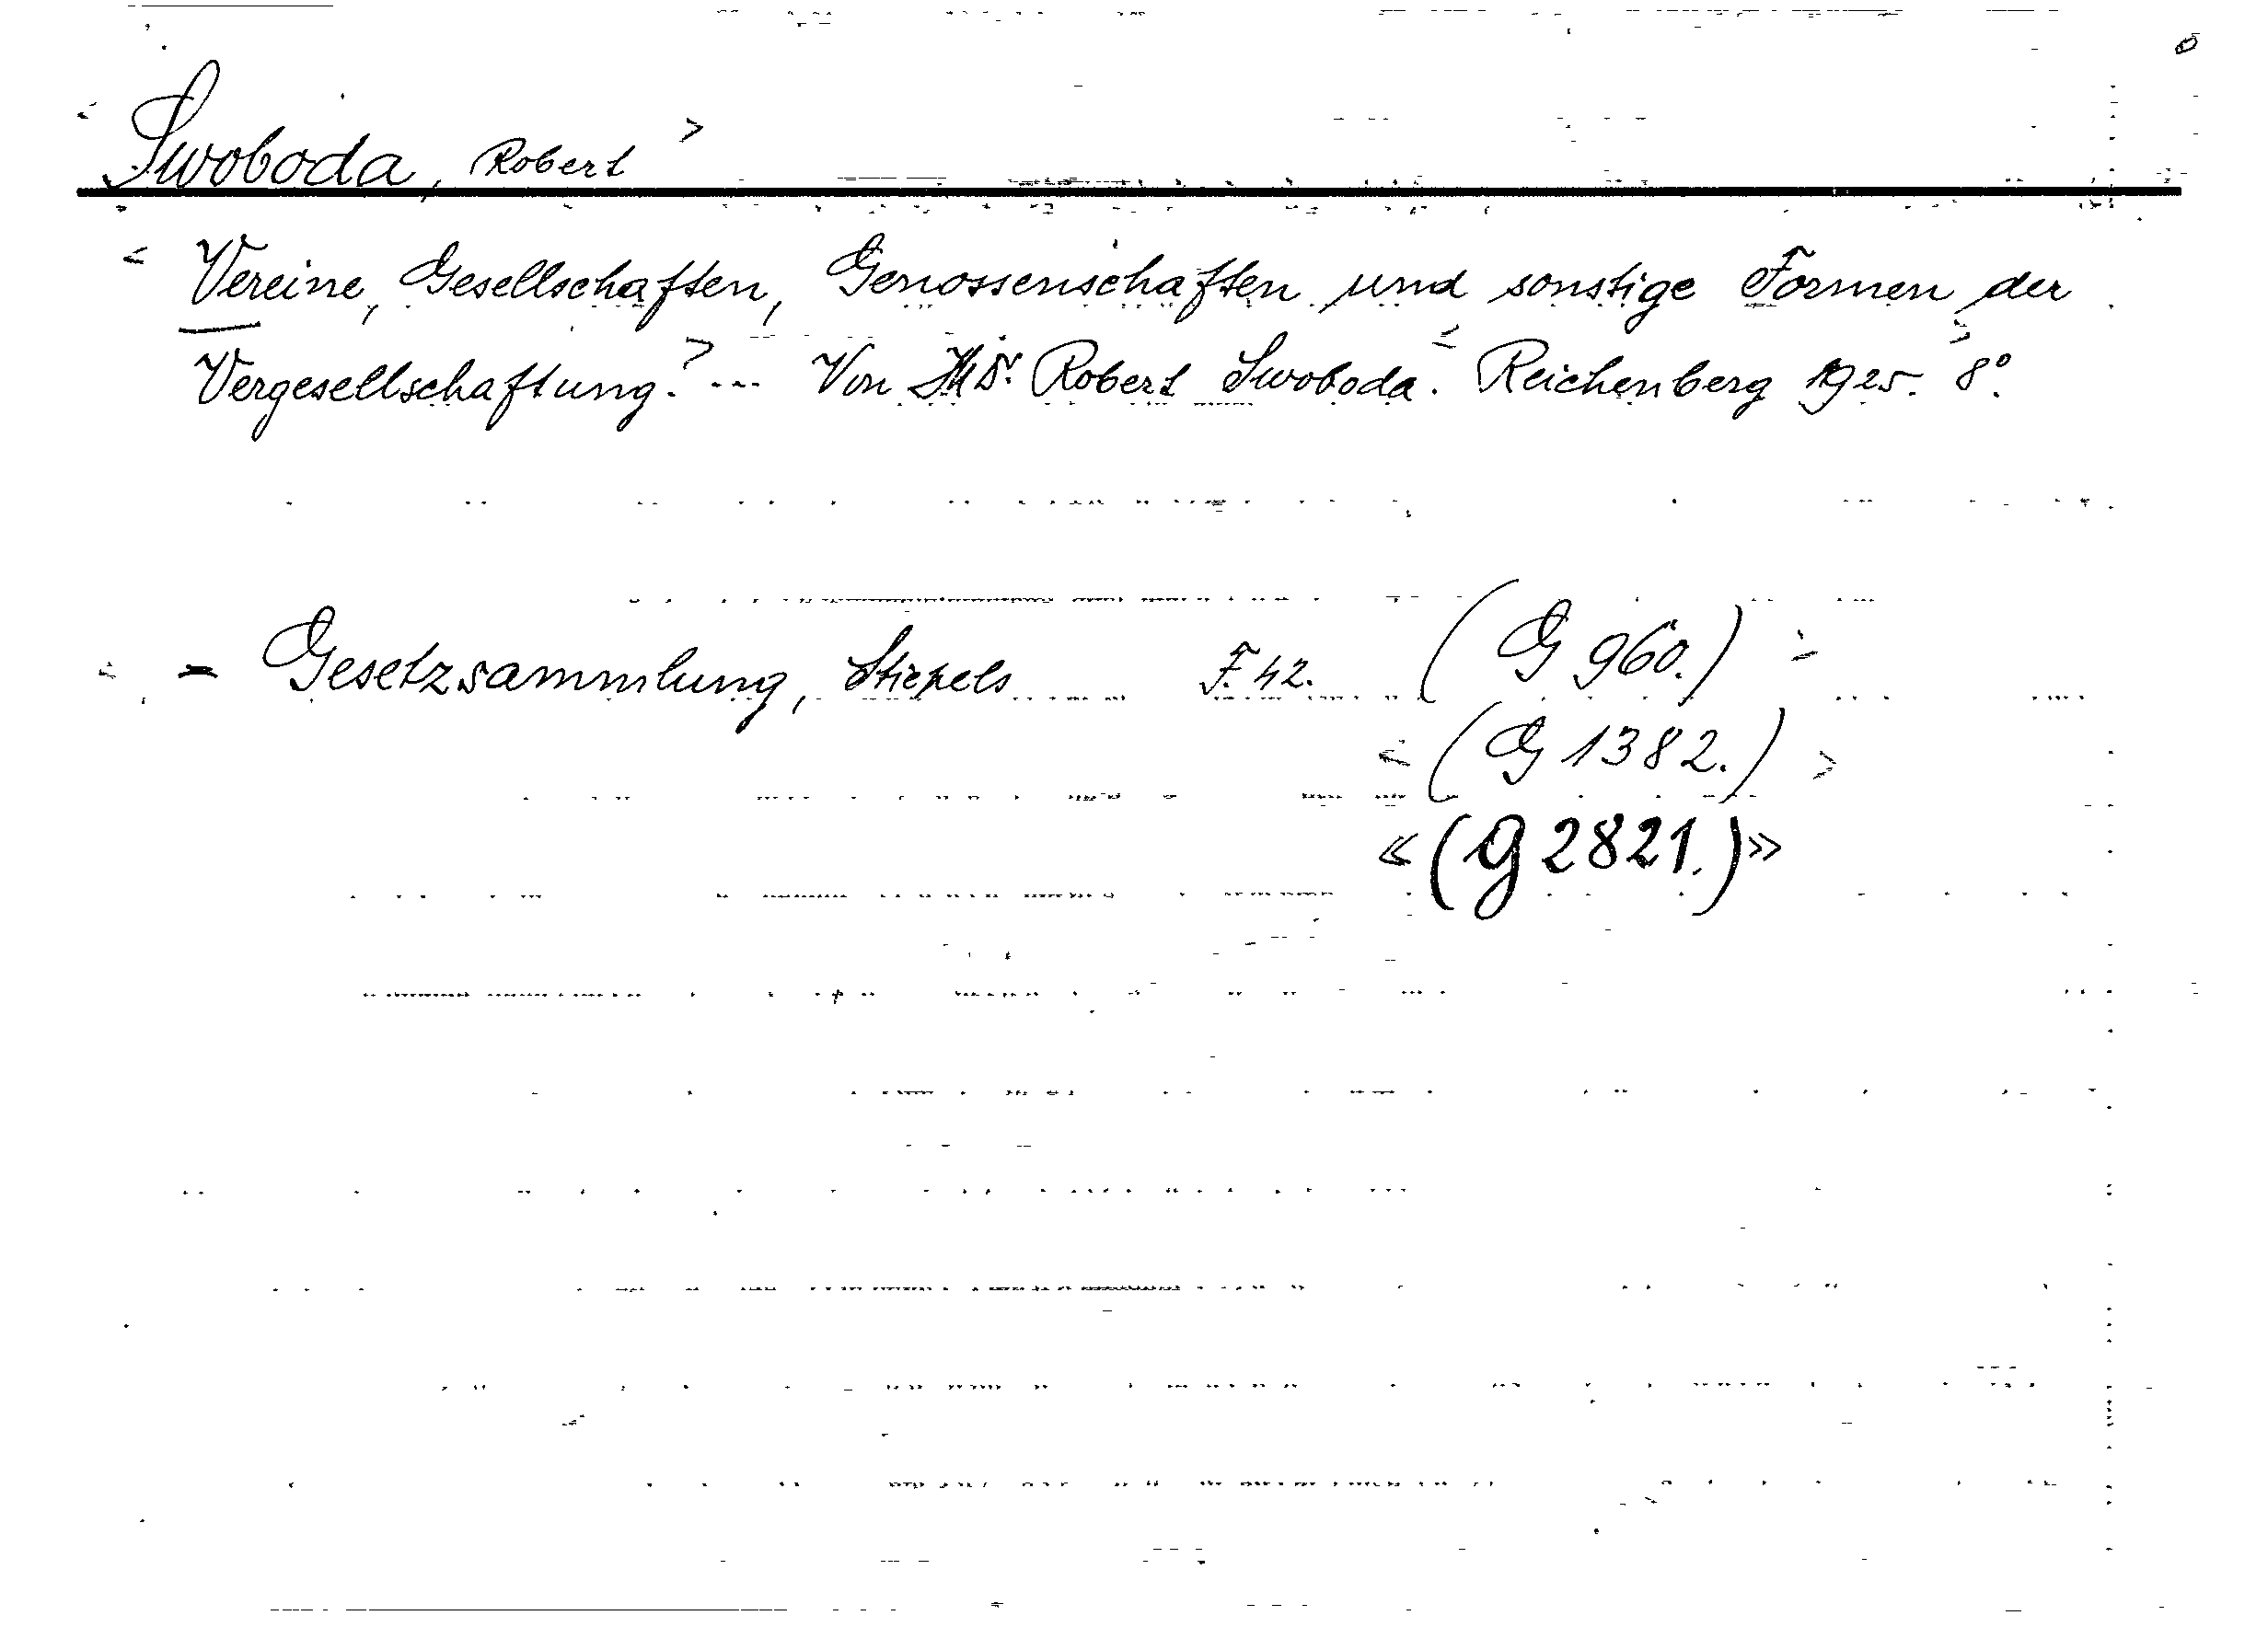 <Swoboda, Robert>
<Vereine, Gesellschaften, Genossenschaften und sonstige Formen der
Vergesellschaftung.> --- Von Dr. Robert Swoboda. <Reichenberg 1925. 8°.>
<= Gesetzsammlung, Stiepels, F. 42. (G 960.)>
<(G 1382.)>
«(G 2821.)»